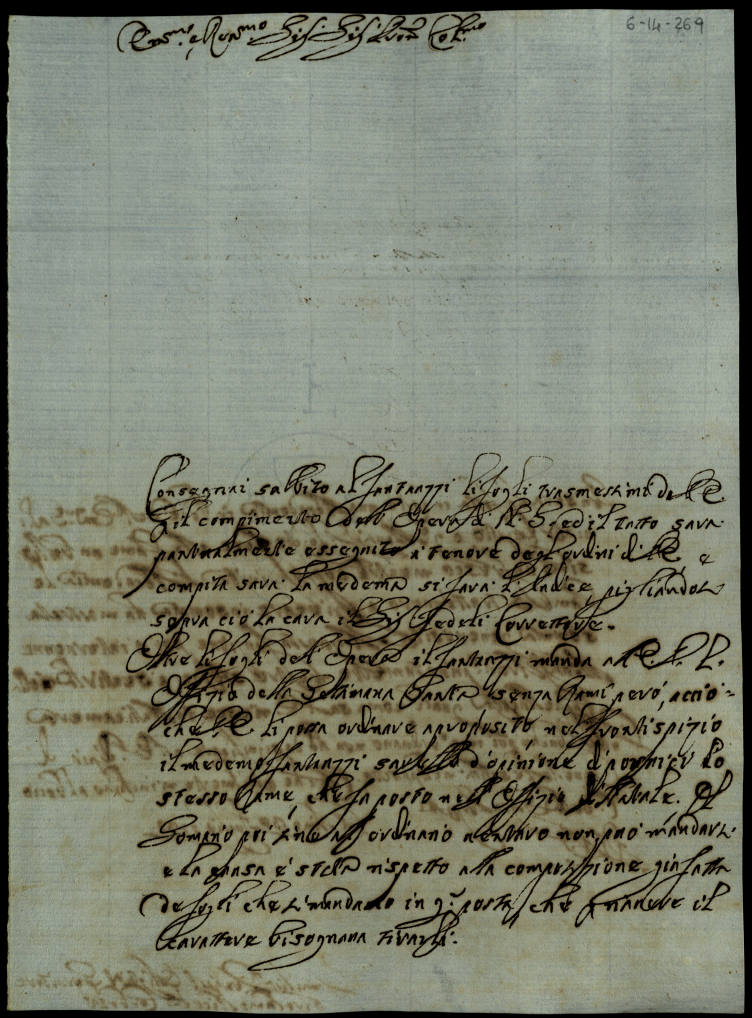 6-14-269
Em.mo e Rev.mo Sig.r Sig.r Pron Col.mo
Consegnai subbito al Fantauzzi li fogli trasmessimi da
il compimento dell' Opera di e del tutto sarà
pontualmente esseguito a tenore degl'ordini di e
compita sarà la medema si farà l'Indice, pigliandosi
sopra ciò la cura il Sig.r Fedeli Correttore.
Oltre li fogli dell' Opera il Fantauzzi manda all'
Offizio della Settimana Santa senza Rami però, accio=
che li possa ordinare a proposito, nel Frontispizio
il medemo Fantauzzi sarebbe d'opinione di porvici lo
stesso Rame, che ha posto nell' Offizio del Natale. Il
poi non può mandarsi
e la causa è stata rispetto alla compositione già fatta
de fogli che si mandano in q.a posta, che il
carattere bisognava tirarli.